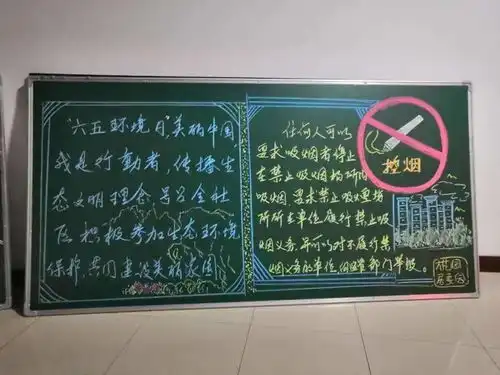 "六五环境日"美丽中国,
我是行动者,传播生
态文明理念,号召全社
区积极参加生态环境
保护,共同建设美丽家园
任何人可以
要求吸烟者停止
在禁止吸烟场所内
吸烟。要求禁止吸烟场
所所在单位履行禁止吸
烟义务,并可以对不履行禁
烟义务的单位,向监管部门举报。
控烟